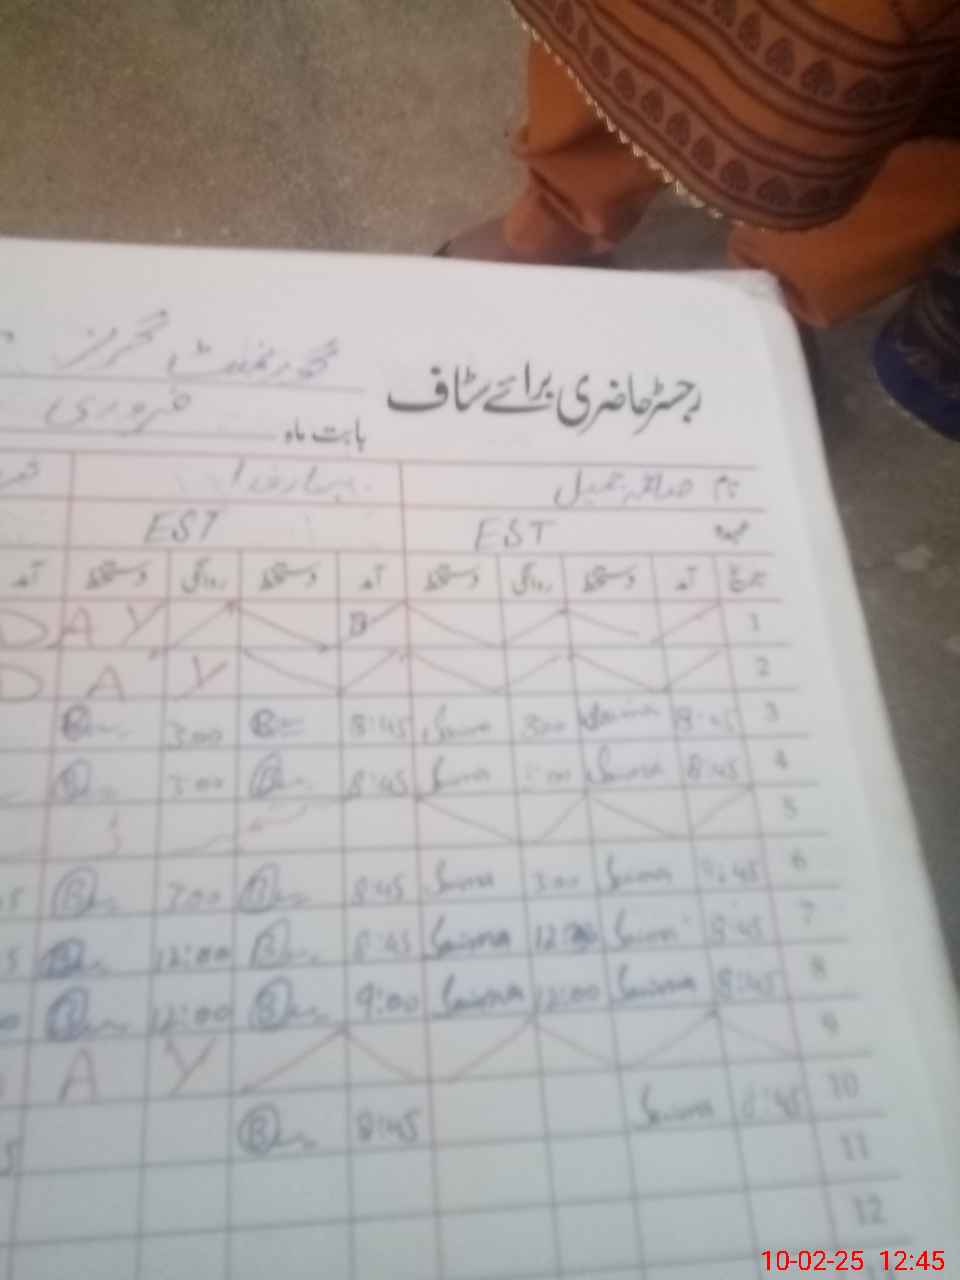 گورنمنٹ گرلز
رجسٹر حاضری برائے سٹاف
بابت ماہ فروری
نام صائمہ جمیل
عہدہ EST EST
تاریخ آمد دستخط روانگی دستخط آمد دستخط روانگی دستخط آمد
1 B Y A D
2 Y A D
3 8:45 Saima 3:00 Saima 8:45 B 3:00 B
4 8:45 Saima Saima 8:45 B 3:00 B
5
6 8:45 Saima 3:00 Saima 8:45 B 3:00 B
7 8:45 Saima Saima 8:45 B 12:00 B
8 8:45 Saima 12:00 Saima 9:00 B 12:00 B
9 Y A
10 8:45 Saima 8:45 B
11
12
10-02-25 12:45